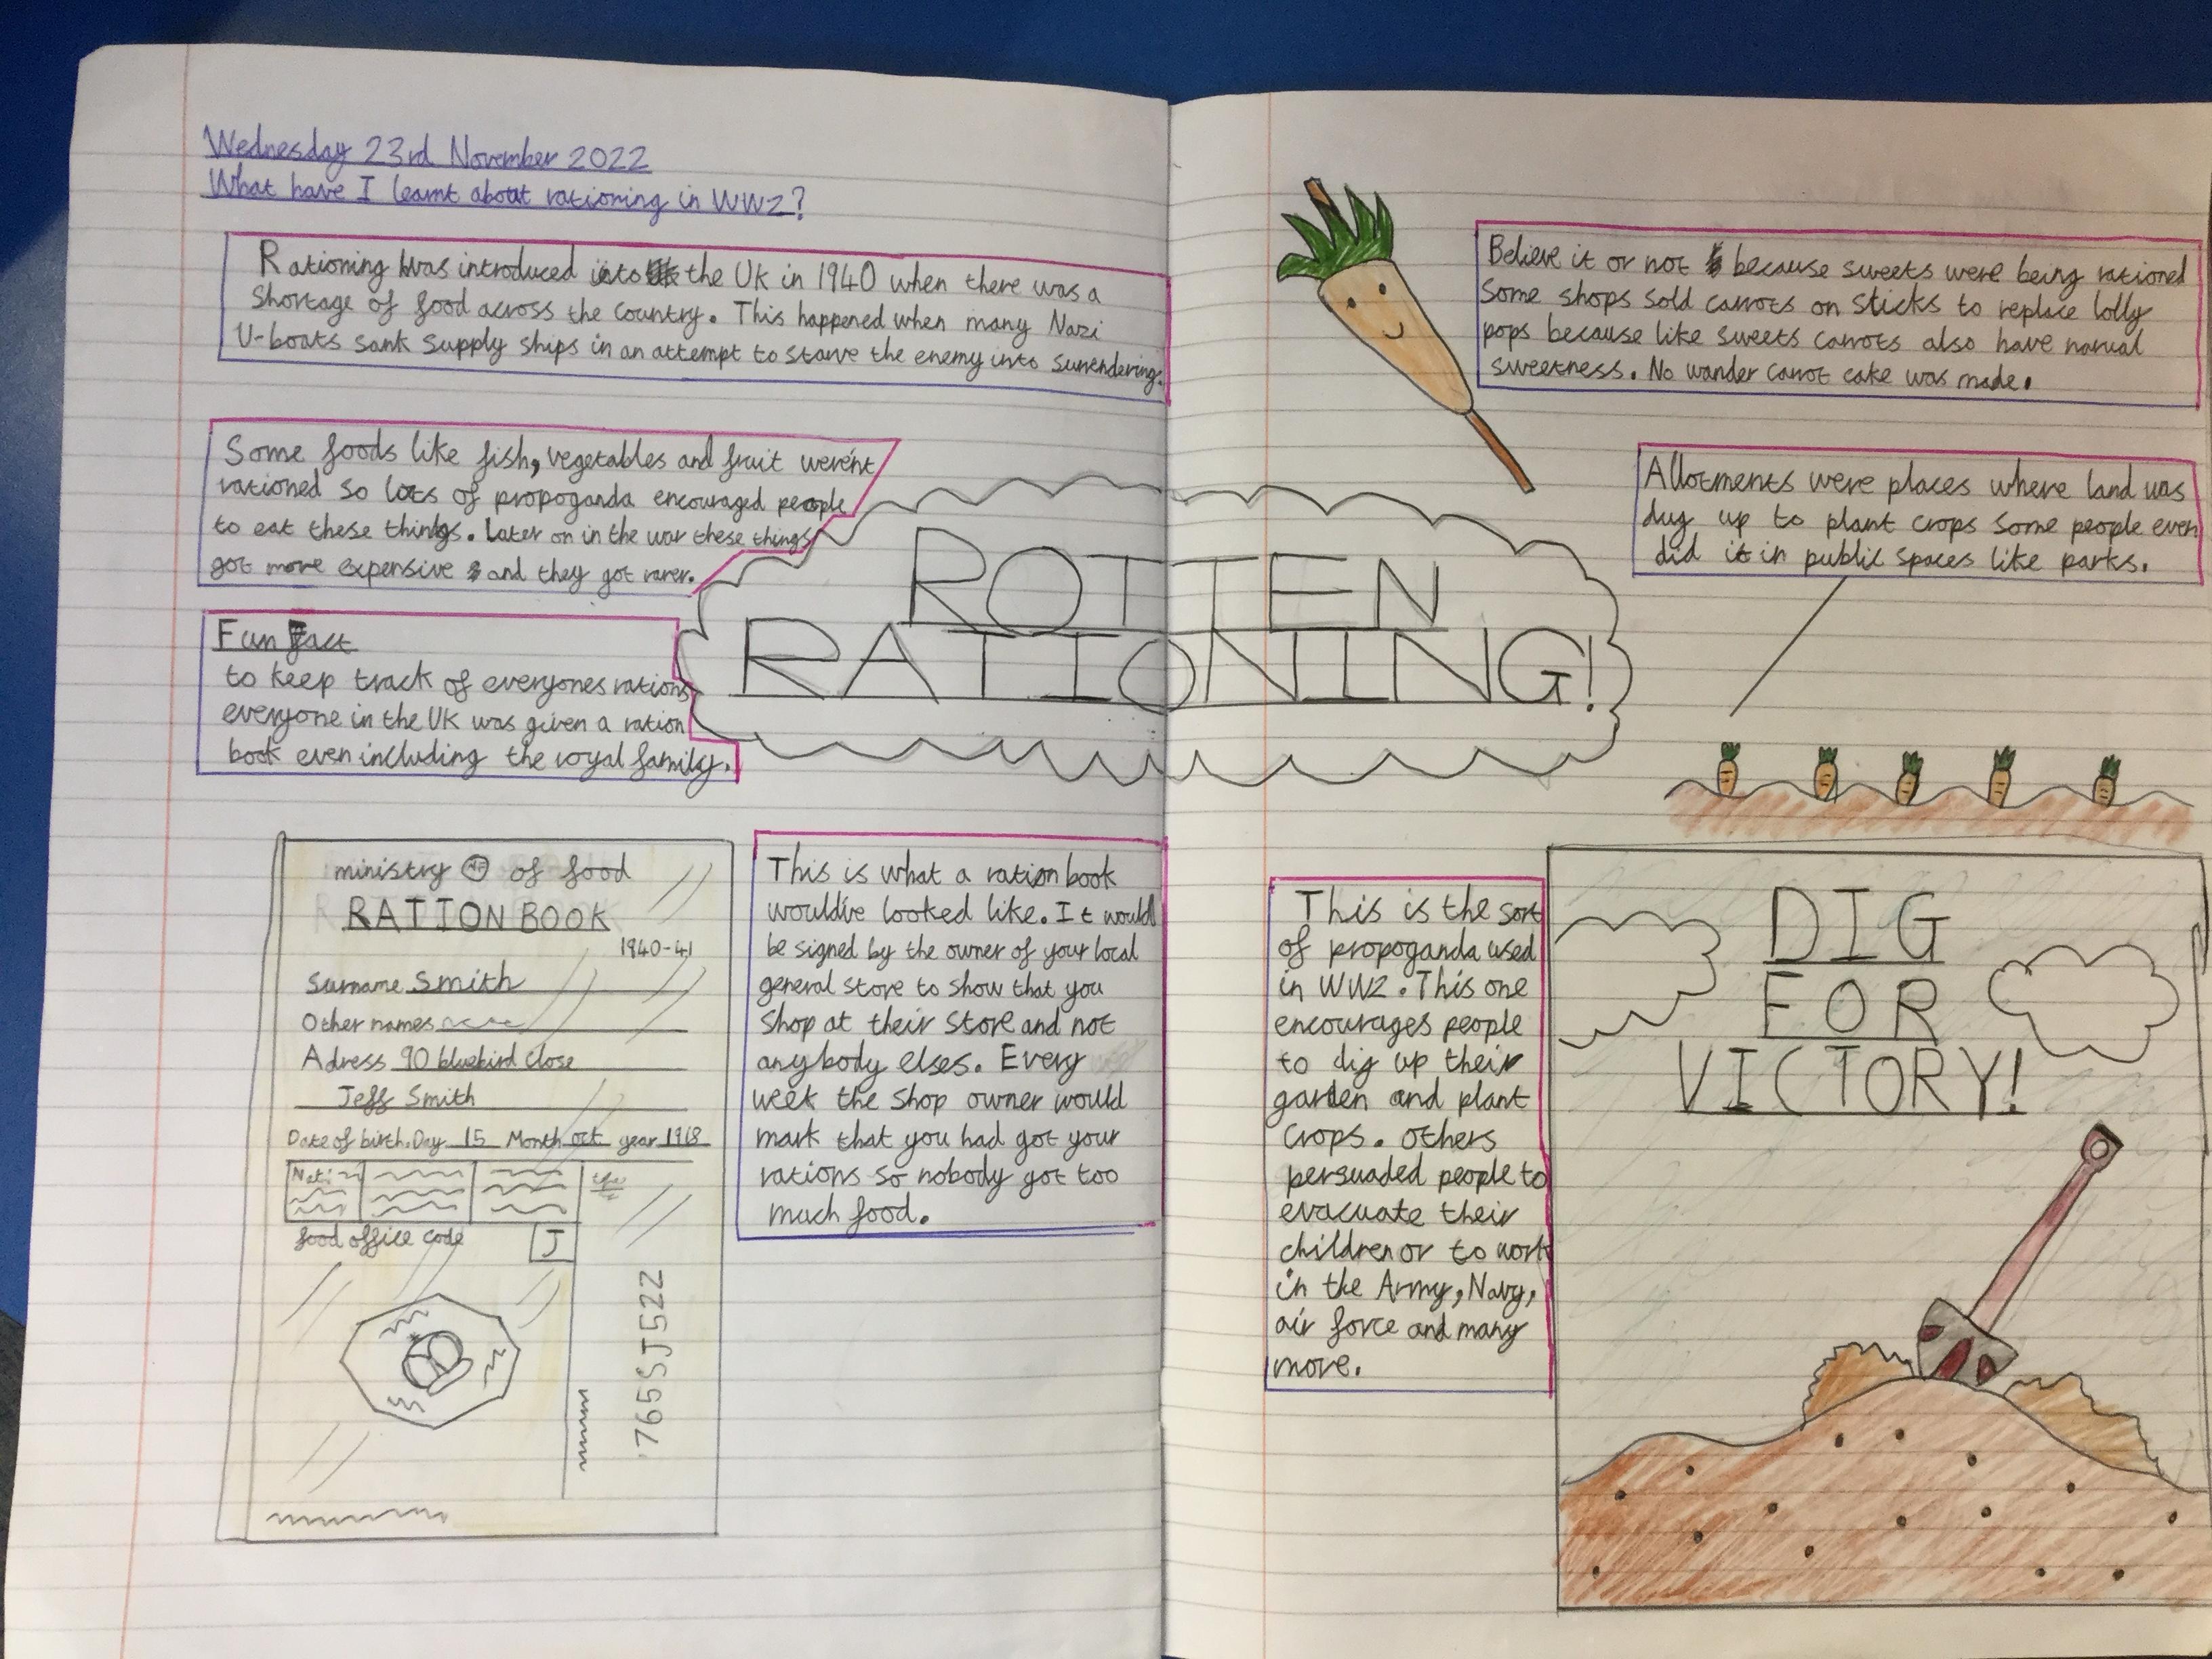 Wednesday 23rd November 2022
What have I learnt about rationing in WW2?
Rationing was introduced into the UK in 1940 when there was a
shortage of food across the country. This happened when many Nazi
U-boats sank supply ships in an attempt to starve the enemy into surrendering.
Some foods like fish, vegetables and fruit weren't
rationed so lots of propoganda encouraged people
to eat these things. Later on in the war these things
got more expensive and they got rarer.
Fun Fact
to keep track of everyones rations
everyone in the UK was given a ration
book even including the royal family.
ROTTEN
RATIONING!
ministry MF of food
RATION BOOK
1940-41
Surname Smith
Other names
Adress 90 bluebird close
Jeff Smith
Date of birth. Day 15 Month oct year 1918
food office code J
765SJ522
This is what a ration book
would've looked like. It would
be signed by the owner of your local
general store to show that you
shop at their store and not
anybody elses. Every
week the shop owner would
mark that you had got your
rations so nobody got too
much food.
Believe it or not because sweets were being rationed
some shops sold carrots on sticks to replace lolly
pops because like sweets carrots also have narual
sweetness. No wander carrot cake was made.
Allotments were places where land was
dug up to plant crops some people even
did it in public spaces like parks.
This is the sort
of propoganda used
in WW2. This one
encourages people
to dig up their
garden and plant
crops. Others
persuaded people to
evacuate their
children or to work
in the Army, Navy,
air force and many
more.
DIG
FOR
VICTORY!